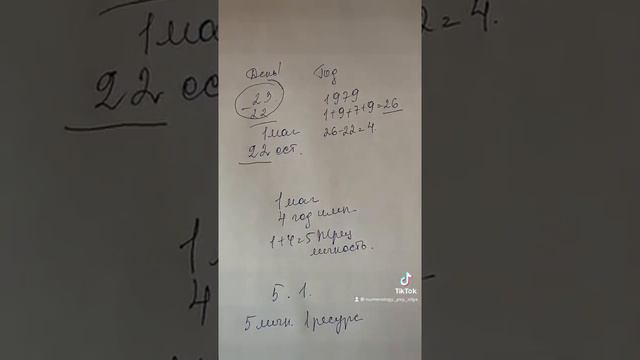 День!
Год
23
- 22
1 маг
22 ост.
1979
1+9+7+9=26
26-22=4.
1 маг
4 год имп
1+4=5 Жрец
личность.
5. 1.
5 личн. 1 ресурс
TikTok
1 маг
22 ост.
4.
4